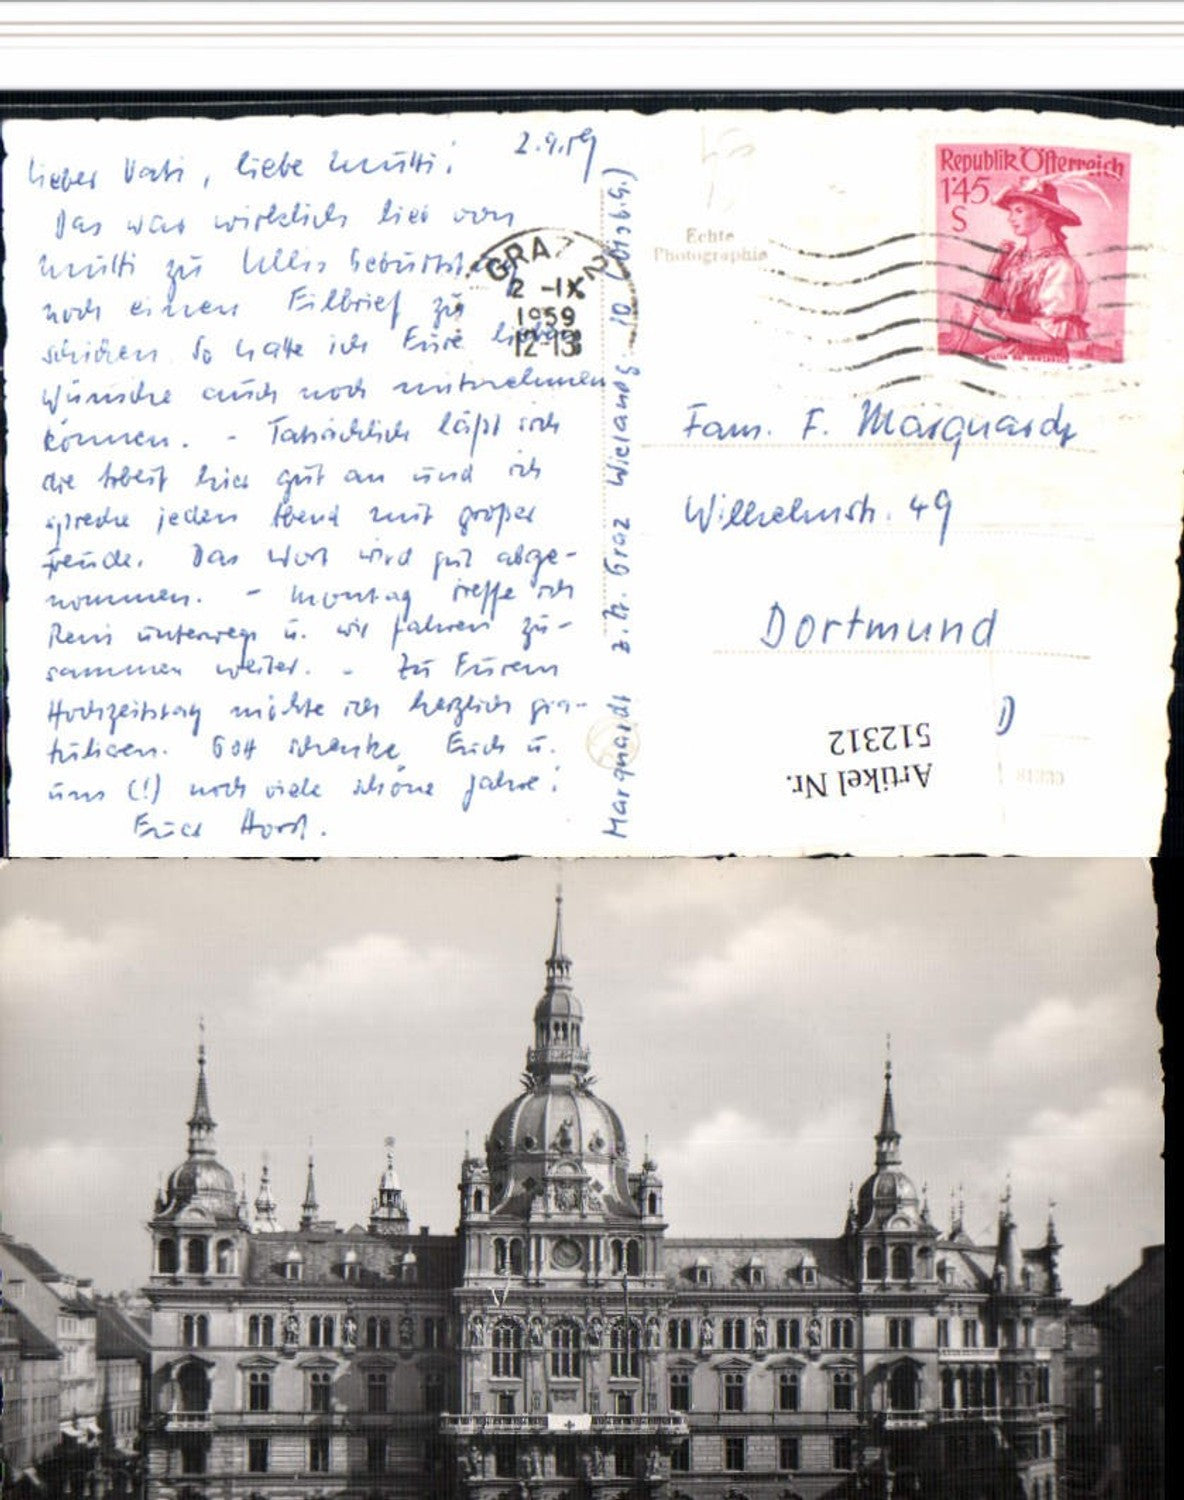 2.9.59
Lieber Vati, liebe Mutti!
Das war wirklich lieb von
Mutti zu Ullis Geburtstag
noch einen Eilbrief zu
schicken. So hatte ich Eure lieben
Wünsche auch noch mitnehmen
können. - Tatsächlich läßt sich
die Arbeit hier gut an und ich
spreche jeden Abend mit großer
Freude. Das Wort wird gut abge-
nommen. - Montag treffe ich
Reni unterwegs u. wir fahren zu-
sammen weiter. - Zu Eurem
Hochzeitstag möchte ich herzlich gra-
tulieren. Gott schenke Euch u.
uns (!) noch viele schöne Jahre!
Euer Horst.
Marquardt z. Zt. Graz Wielandg. 10
GRAZ 2
2 -IX
1959
12-13
Echte
Photographie
Republik Österreich
1'45
S
Fam. F. Marquardt
Wilhelmstr. 49
Dortmund
D
Artikel Nr.
512312